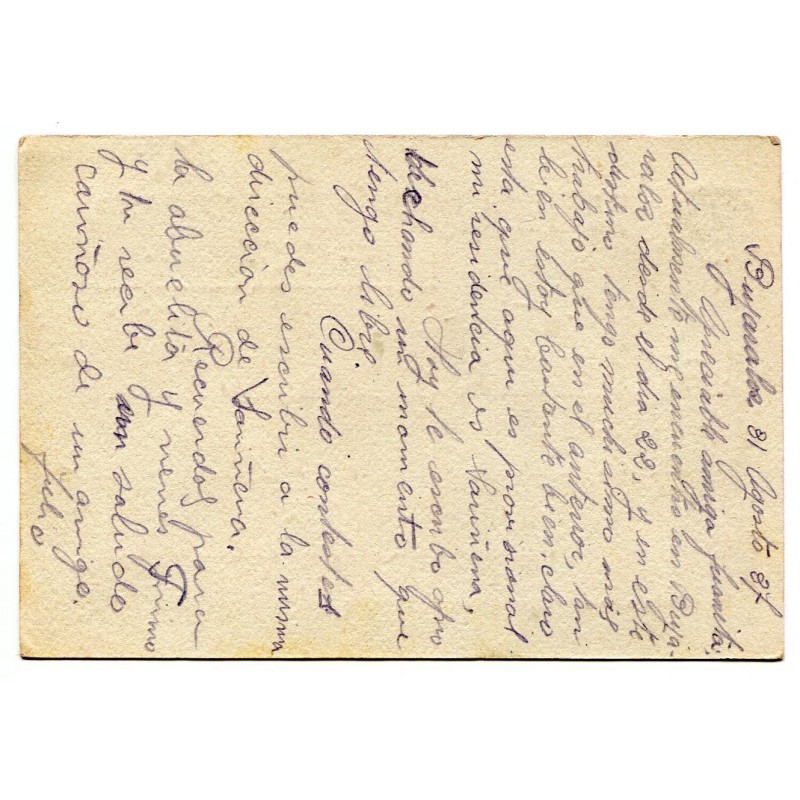 Bujaraloz 31 Agosto 37
Apreciable amiga Juanita:
Actualmente me encuentro en Buja-
raloz desde el dia 22, y en este
destino tengo muchisimo más
trabajo que en el anterior, tan
bien estoy bastante bien, claro
esta que aqui es provisional
mi residencia es Sariñena,
Hoy te escribo apro
vechando un momento que
tengo libre
Cuando contestes
puedes escribir a la misma
dirección de Sariñena.
Recuerdos para
la abuelita y nenes Firmo
y tu recibe con saludo
cariñoso de un amigo.
Julio